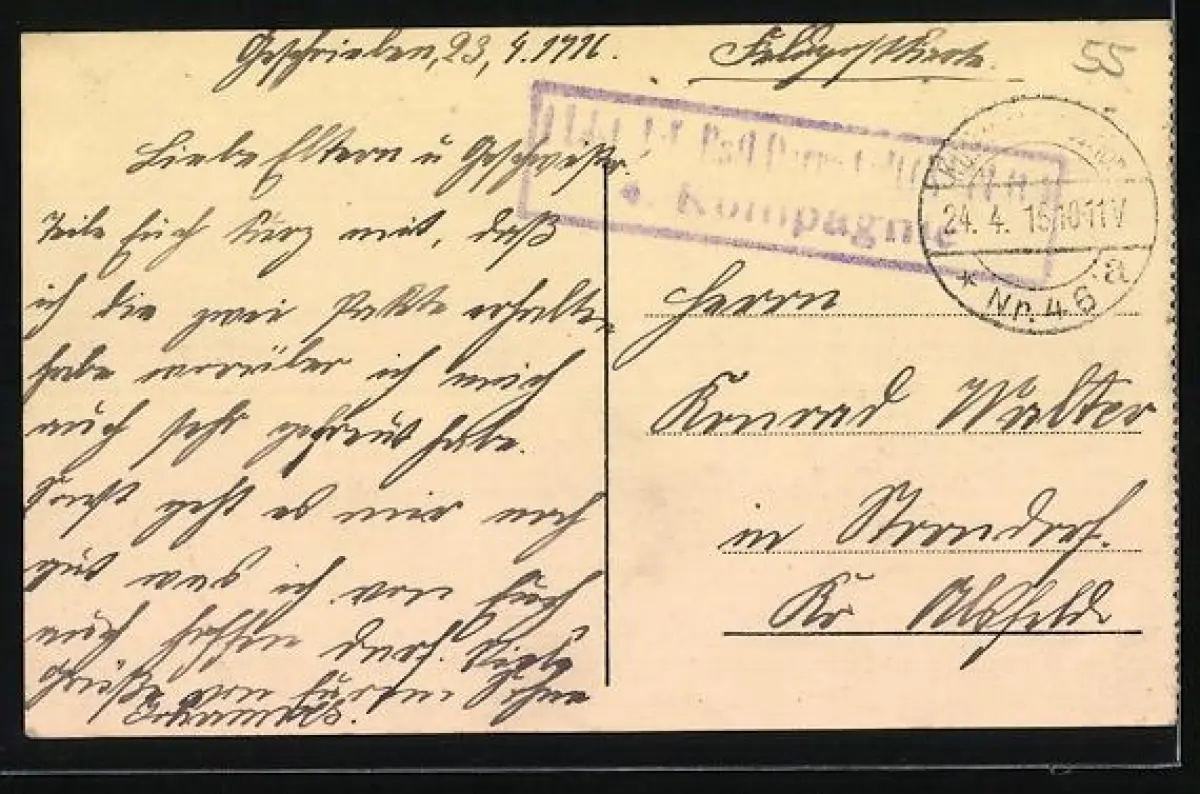 Geschrieben, 23, 4. 1916.
Feldpostkarte.
55
Liebe Eltern u Geschwister!
Teile Euch kurz mit, daß
ich die zwei Pakte erhalten
habe worüber ich mich
auch sehr gefreut habe.
Sonst geht es mir noch
gut was ich von Euch
auch hoffen darf. Viele
Grüße von Eurem Sohne
Johannes.
Kompagnie
24. 4. 16 10-11V
* Nr. 46 a
Herrn
Konrad Walter
in Storndorf.
Kr Alsfeld